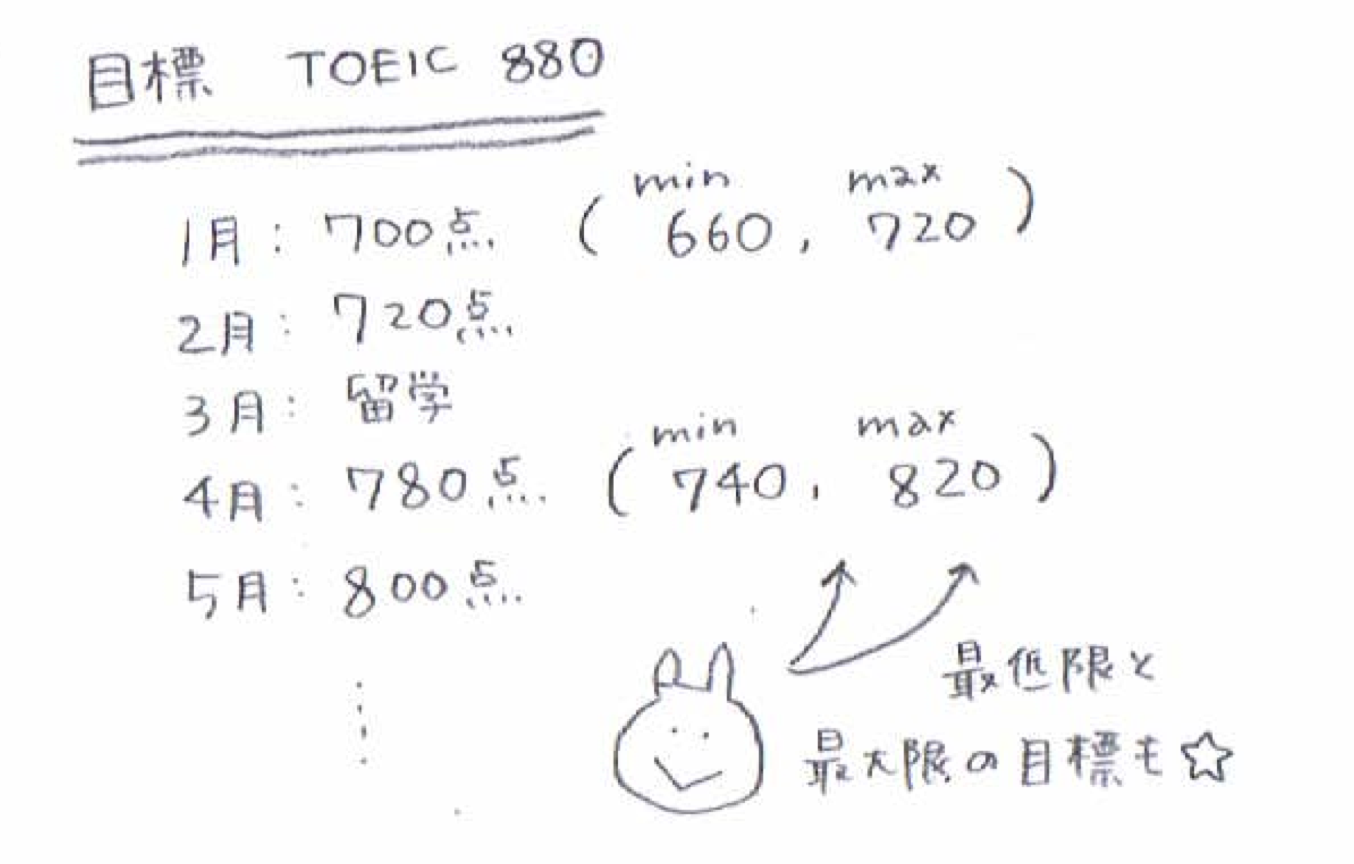 目標 TOEIC 880
min max
1月: 700点 ( 660, 720 )
2月: 720点
3月: 留学
min max
4月: 780点 ( 740, 820 )
5月: 800点
最低限と
最大限の目標も☆